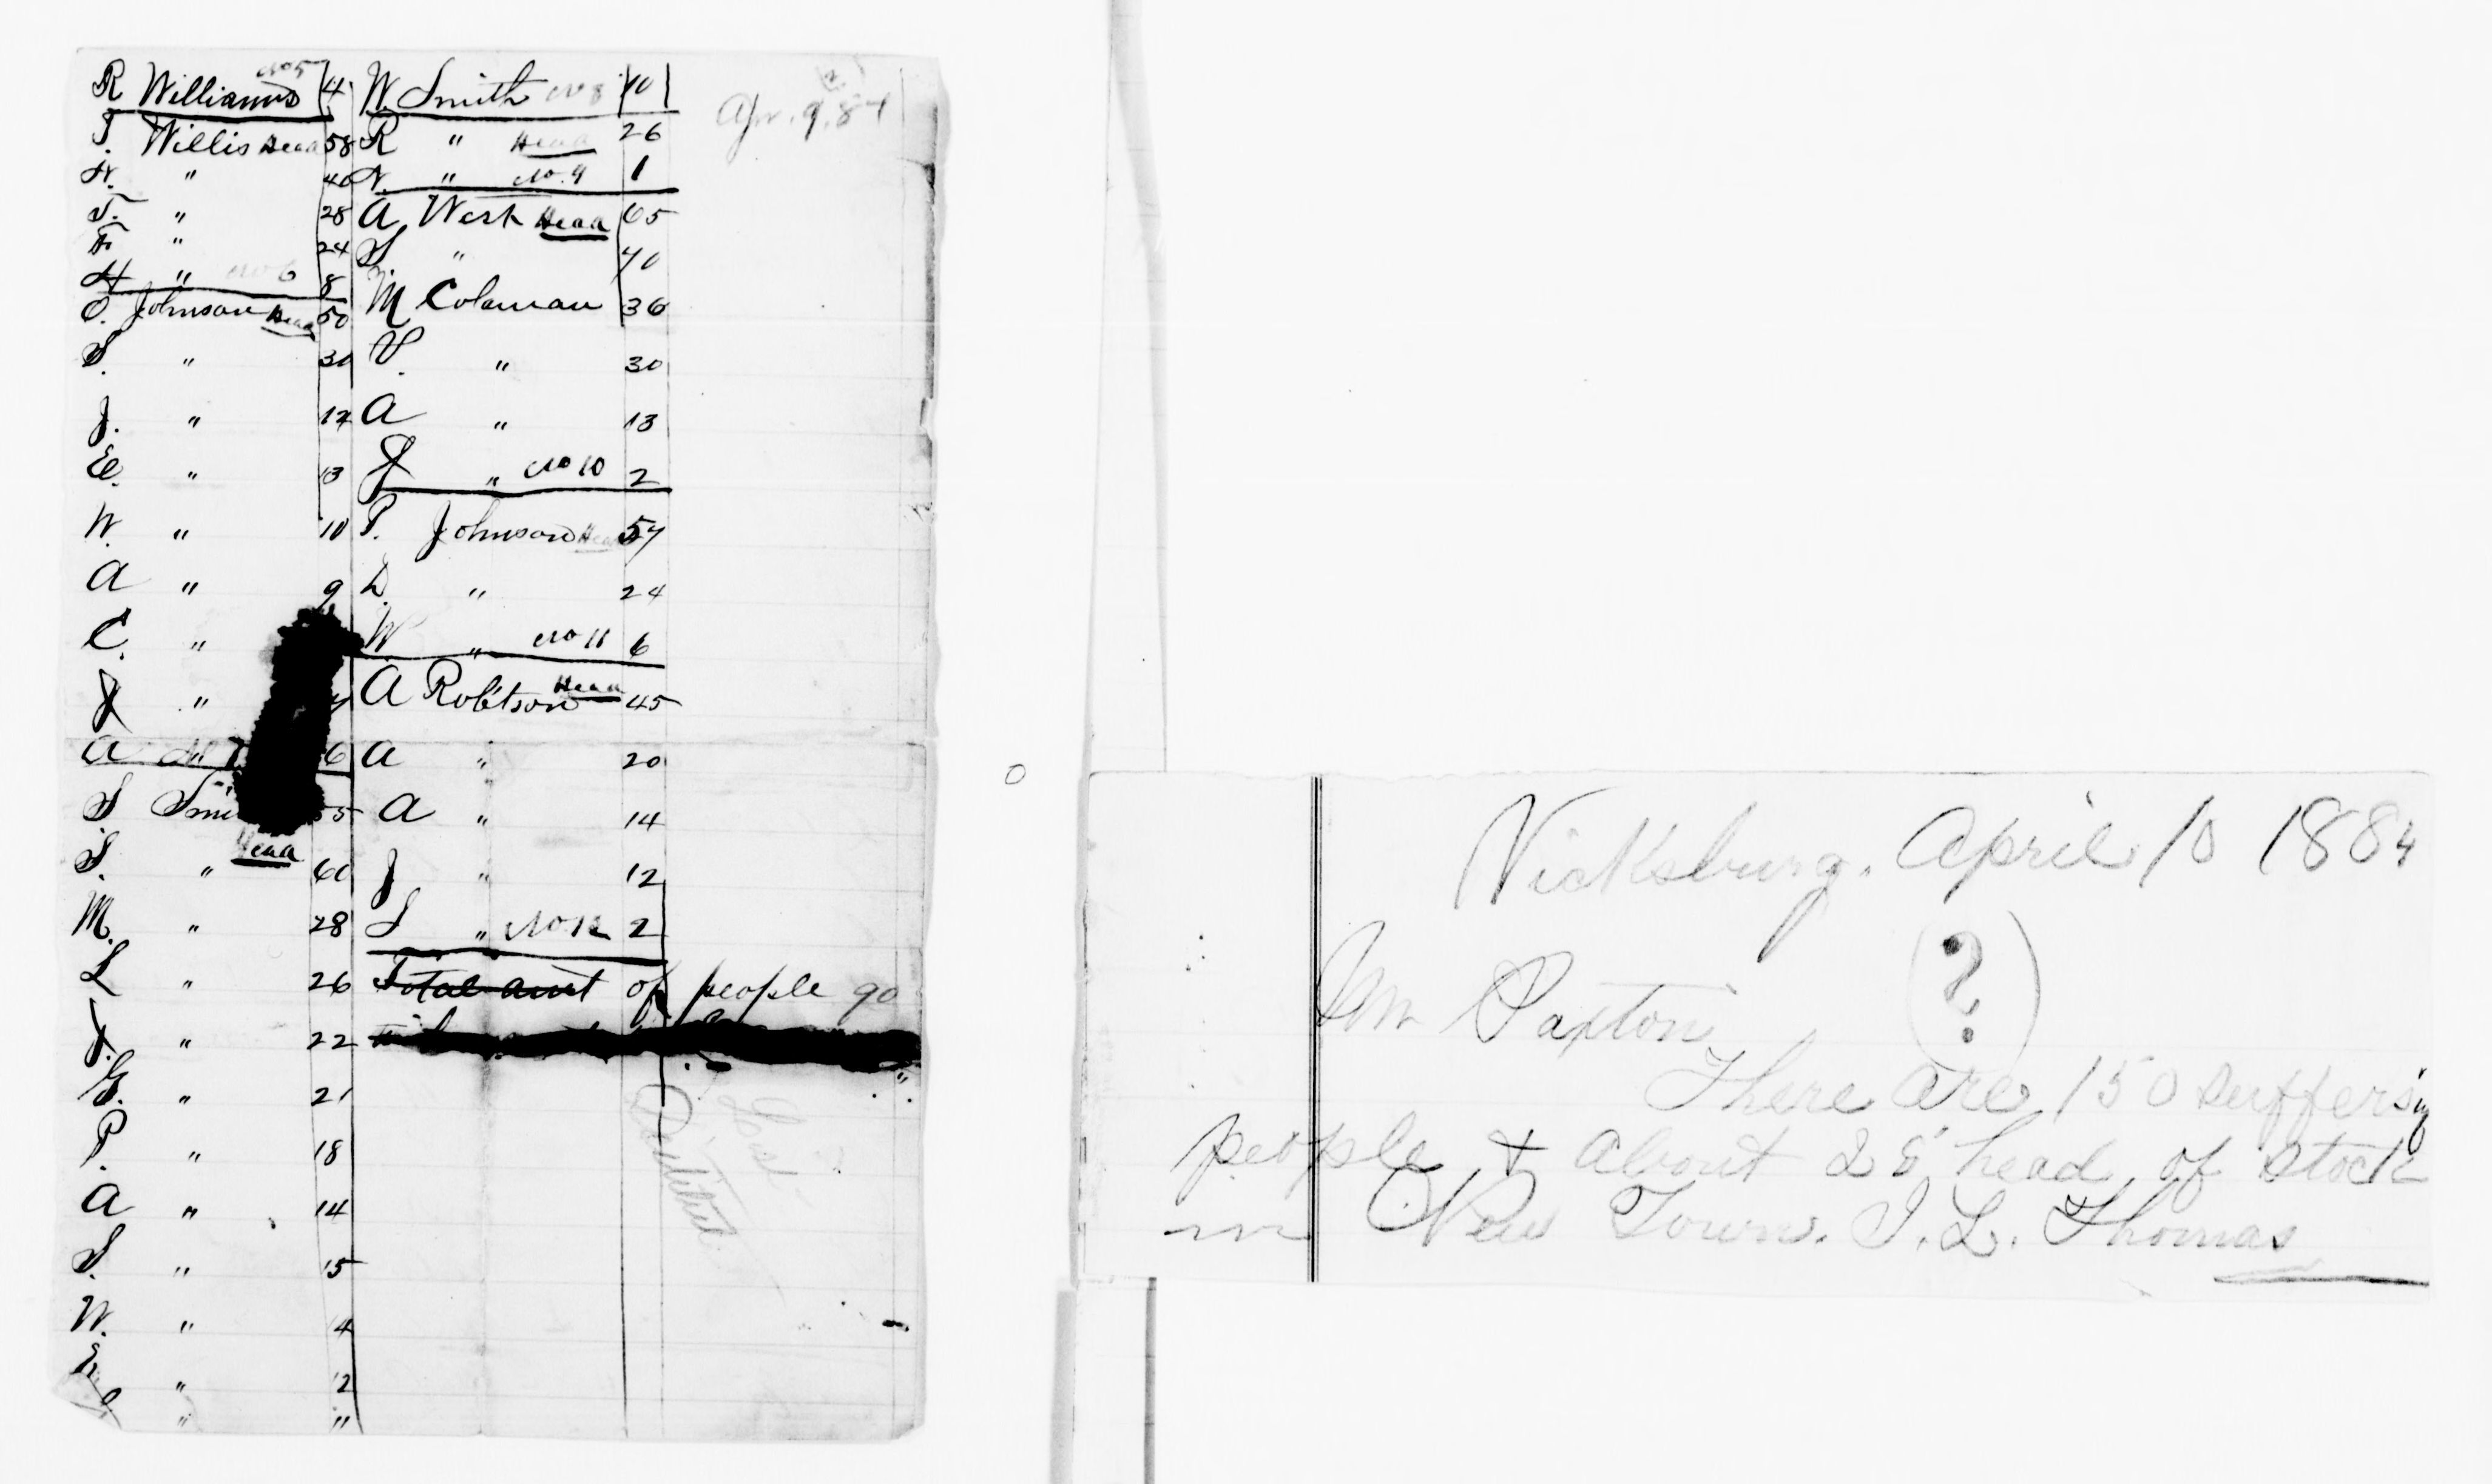 R Williams No 5 4
J. Willis Head 58
N. " 40
J. " 28
F. " 24
H " No 6 8
O. Johnson Head 50
S. " 30
J. " 17
E. " 13
W. " 10
A " 9
C. "
J "
A " No 7 6
S Smi 55
Head
S. " 60
M. " 28
L " 26
J. " 22
G. " 21
P. " 18
A " 14
S. " 15
W. " 4
" 2
" "
W. Smith No 8 10
R " Head 26
N. " No. 9 1
A West Head 65
S " 40
M Coleman 36
V. " 30
A " 13
J " No 10 2
P. Johnson Head 57
L. " 24
W " No 11 6
A Robtson Head 45
A " 20
A " 14
J " 12
S " No. 12 2
Total amt of people 90
Apr. 9. 84
List
Destitute
Vicksburg. April 10 1884
Mr Paxton (?)
There are 150 suffering
people & about 28 head of stock
in New Town. J. L. Thomas